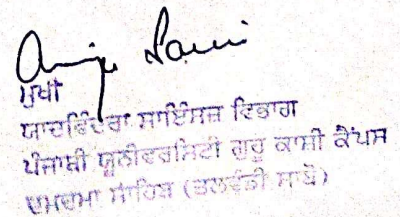 ਮੁਖੀ
ਯਾਦਵਿੰਦਰਾ ਸਾਇੰਸਜ਼ ਵਿਭਾਗ
ਪੰਜਾਬੀ ਯੂਨੀਵਰਸਿਟੀ ਗੁਰੂ ਕਾਸ਼ੀ ਕੈਂਪਸ
ਦਮਦਮਾ ਸਾਹਿਬ (ਤਲਵੰਡੀ ਸਾਬੋ)